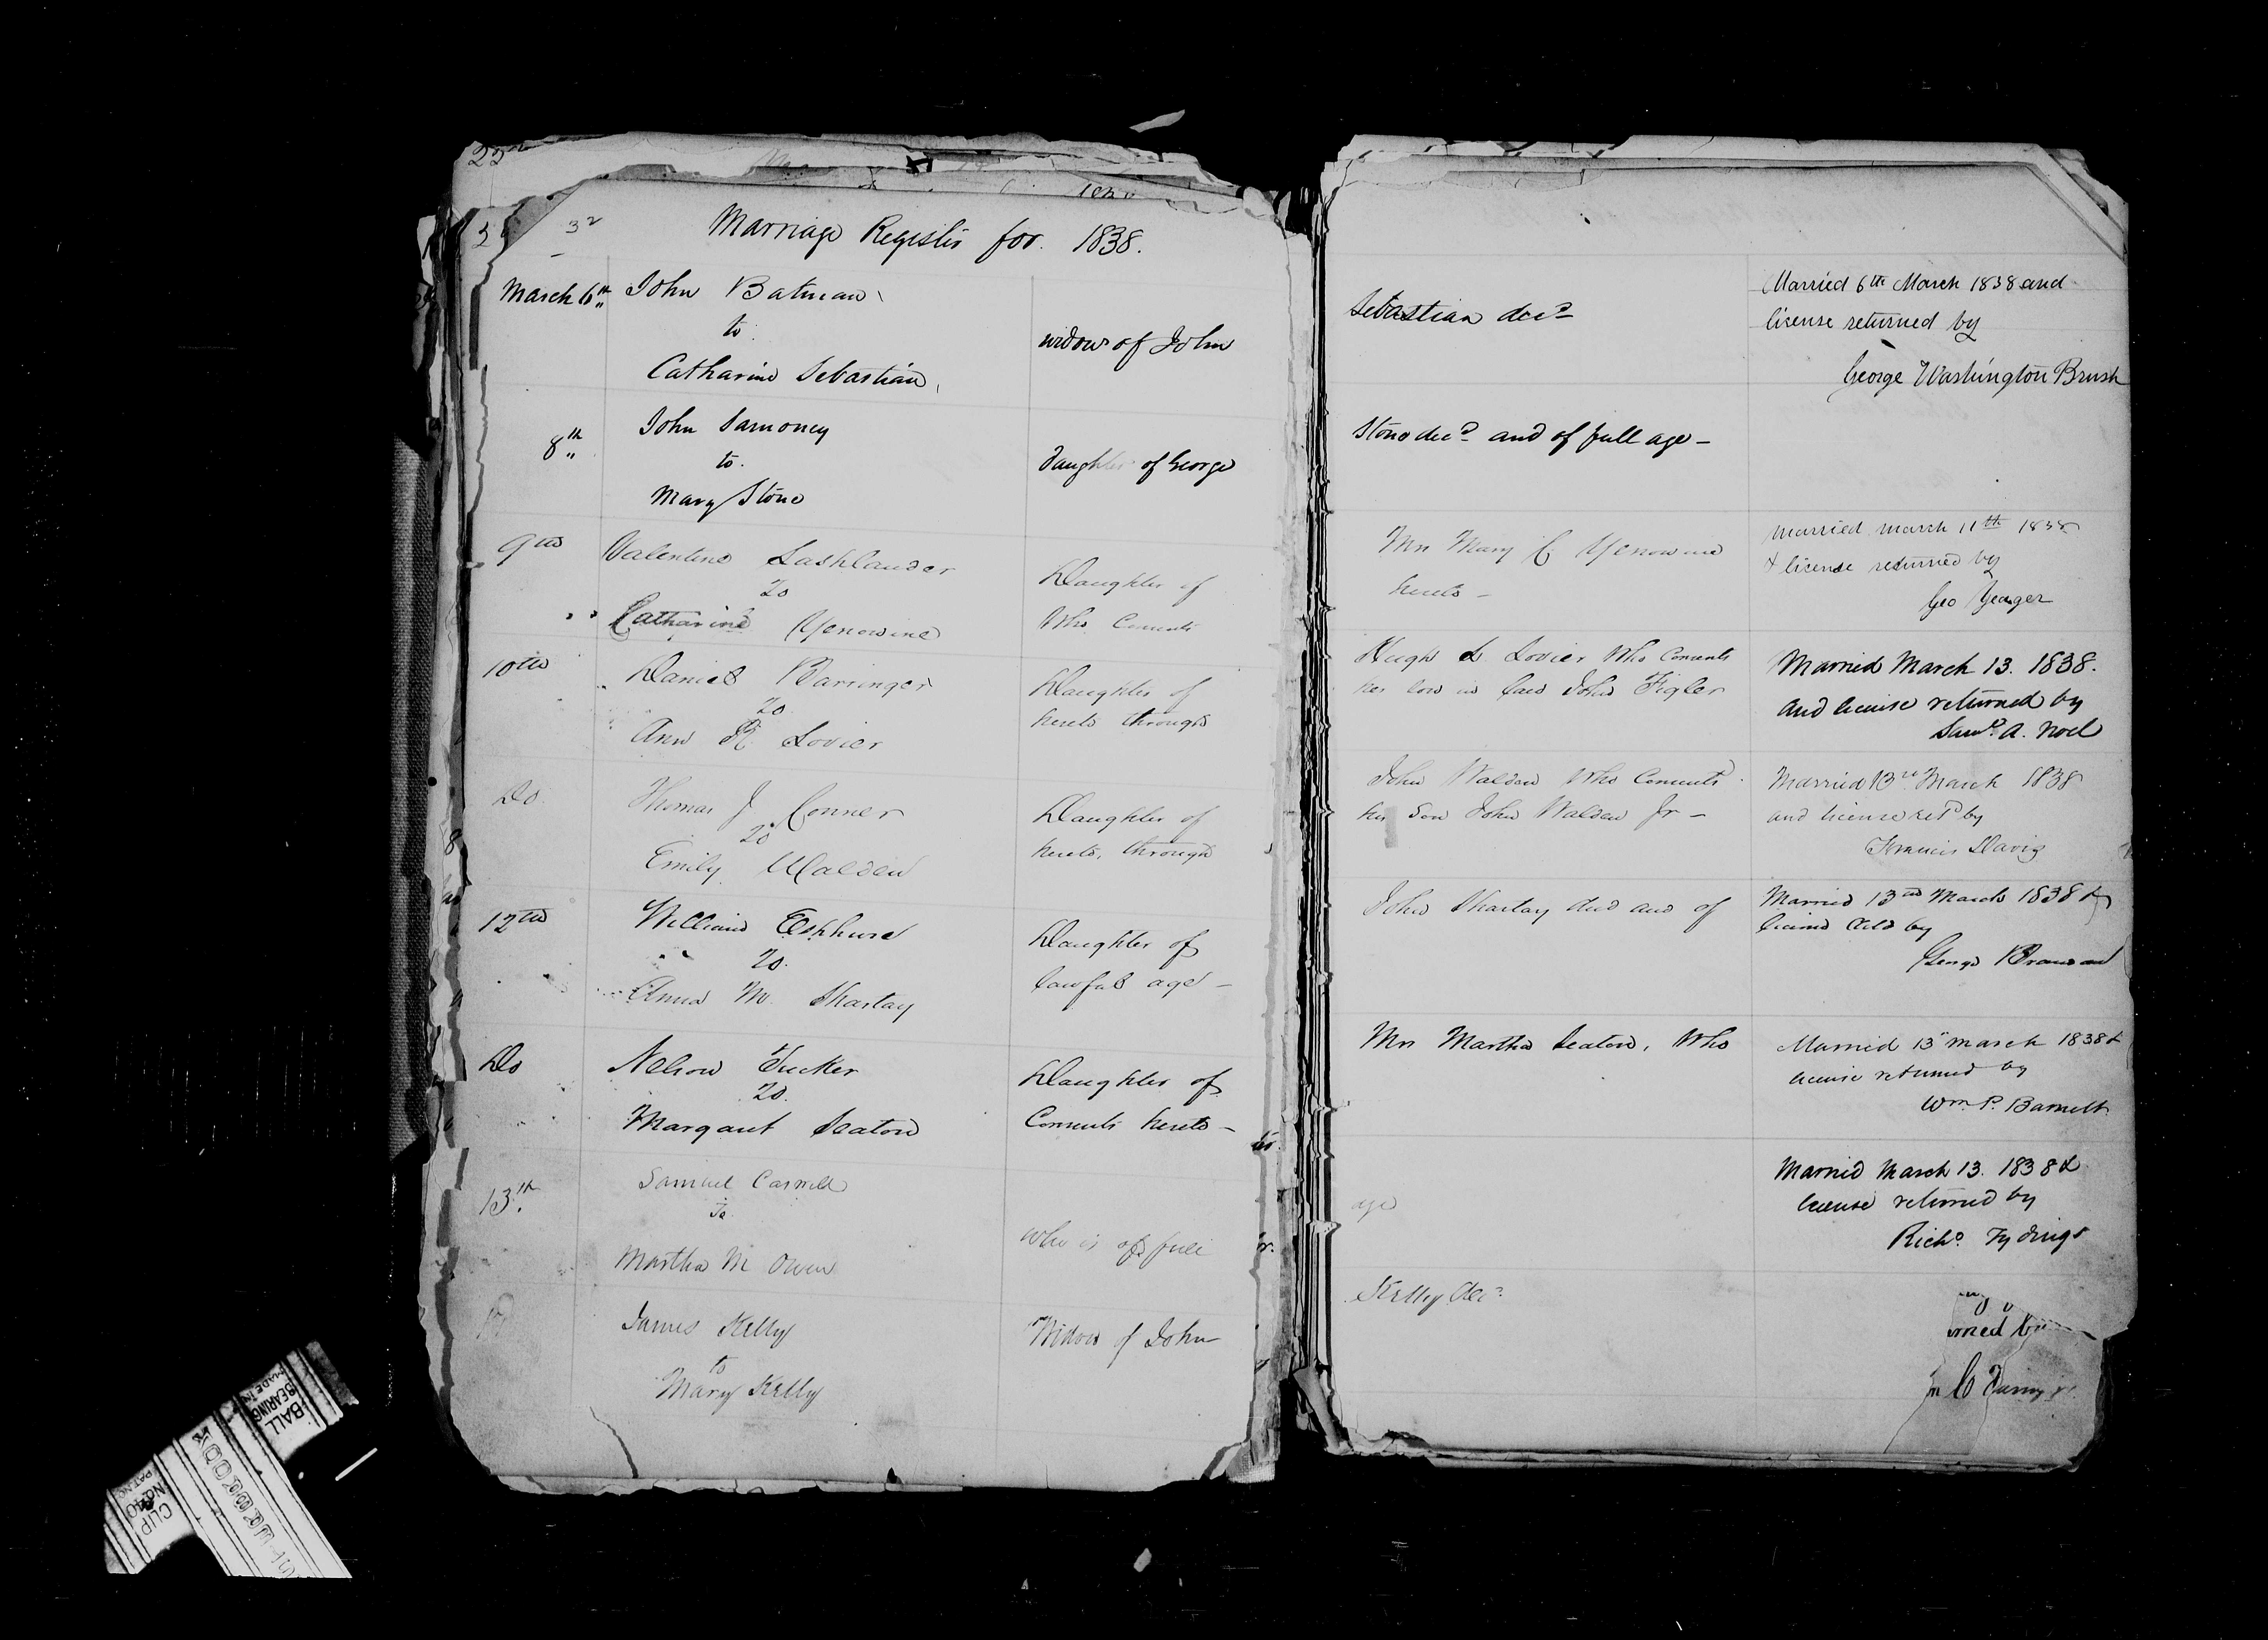 32
Marriage Register for 1838.
March 6th
John Batman
to
Catharine Sebastian
widow of John
Sebastian decd
Married 6th March 1838 and
license returned by
George Washington Brush
8th
John Samoney
to
Mary Stone
daughter of George
Stone decd and of full age -
9th
Valentine Lashlander
To
Catharine Yenowine
Daughter of
Who Consents
Mrs Mary C Yenowine
hereto -
Married March 11th 1838
& license returned by
Geo Yeager
10th
Daniel Barringer
To
Ann R Lovier
Daughter of
hereto through
Hugh L Lovier Who Consents
her son in law John Figler
Married March 13. 1838.
and license returned by
Saml. A. Noel
Do
Thomas J Conner
To
Emily Walden
Daughter of
hereto, through
John Walden Who Consents
his Son John Walden Jr -
Married 13th March 1838
and license retd by
Francis Davis
12th
William
To
Anna M. Shartay
Daughter of
lawful age -
John Shartay decd and of
Married 13th March 1838 &
license retd by
George
Do
Nelson Tucker
To
Margaret Seaton
Daughter of
Consents hereto -
Mrs Martha Seaton, Who
Married 13th March 1838 &
license returned by
Wm. P. Barnett
13th
Samuel Carnell
To
Martha M Owen
who is of full
age
Married March 13. 1838 &
license returned by
Richd. Tydings
James Kelly
to
Mary Kelly
Widow of John
Kelly decd
BALL
BEARING
MADE IN
CLIP
No 40
PAT. NO.